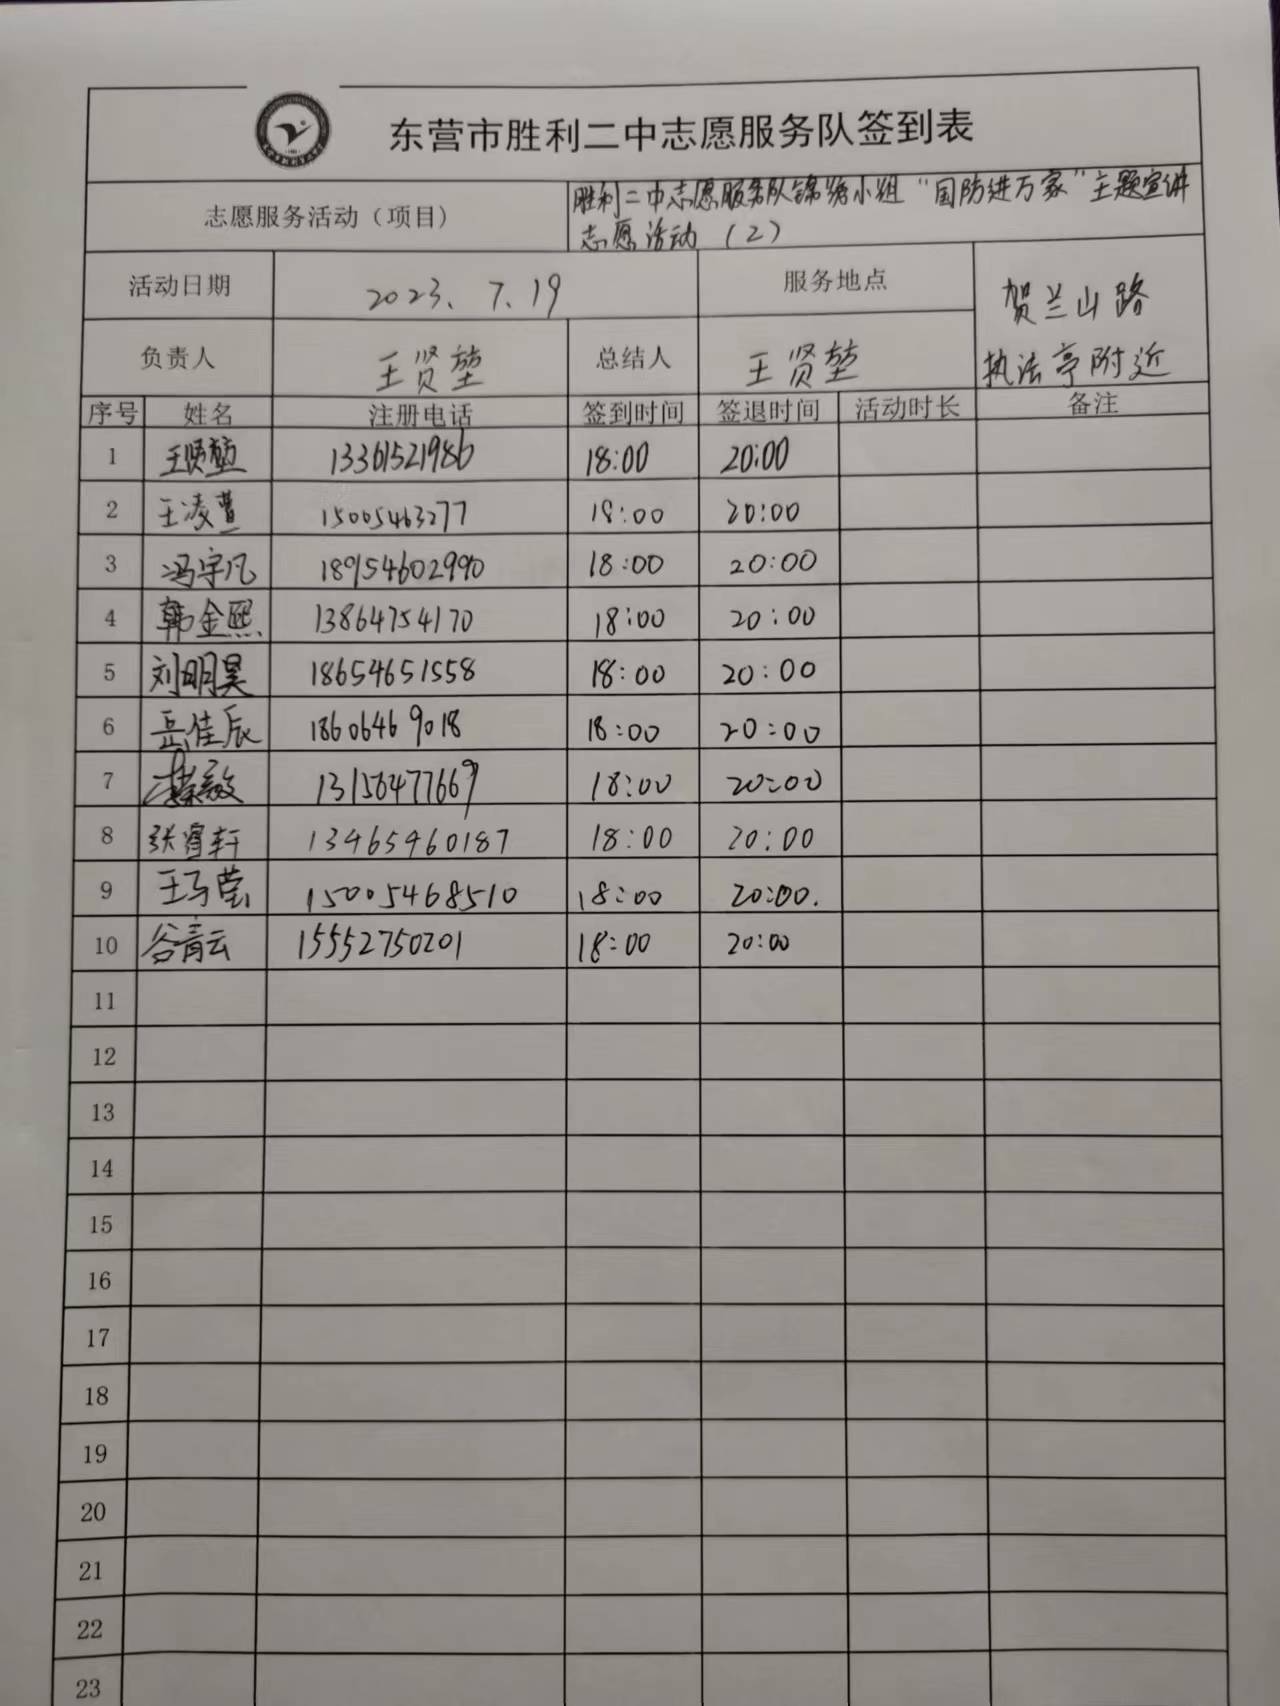 东营市胜利二中志愿服务队签到表
志愿服务活动（项目） 胜利二中志愿服务队锦 小组“国防进万家”主题宣讲
志愿活动（2）
活动日期 2023.7.19 服务地点 贺兰山路
执法亭附近
负责人 王贤堃 总结人 王贤堃
序号 姓名 注册电话 签到时间 签退时间 活动时长 备注
1 王贤堃 13361521986 18:00 20:00
2 王凌萱 15005463277 18:00 20:00
3 冯宇凡 18954602990 18:00 20:00
4 韩金熙 13864754170 18:00 20:00
5 刘明昊 18654651558 18:00 20:00
6 岳佳辰 18606469018 18:00 20:00
7 13156477669 18:00 20:00
8 张睿轩 13465460187 18:00 20:00
9 王子莹 15005468510 18:00 20:00.
10 谷青云 15552750201 18:00 20:00
11
12
13
14
15
16
17
18
19
20
21
22
23